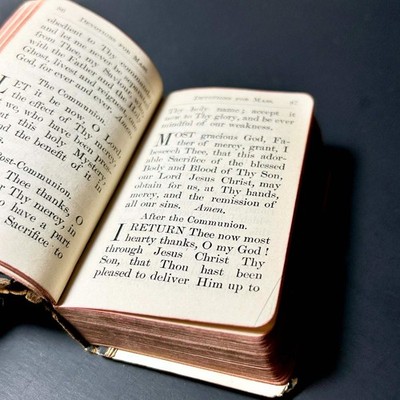 Devotions for Mass.
obedient to Thy comm
and let me never be sep
from Thee, my Saviour
with the Father and the
Ghost, livest and reignest
God, for ever and ever.
The Communion.
LET it be now, O Lord
the effect of Thy
we who have been pre
at this holy Mystery
and the benefit of it in
ost-Communion.
Thee thanks, O
or Thy mercy, in
o have a part
Sacrifice to
Devotions for Mass. 47
Thy holy name; accept is
now to Thy glory, and be ever
mindful of our weakness.
MOST gracious God, Fa-
ther of mercy, grant, I
beseech Thee, that this ador-
able Sacrifice of the blessed
Body and Blood of Thy Son,
our Lord Jesus Christ, may
obtain for us, at Thy hands,
mercy, and the remission of
all our sins. Amen.
After the Communion.
I RETURN Thee now most
hearty thanks, O my God!
through Jesus Christ Thy
Son, that Thou hast been
pleased to deliver Him up to